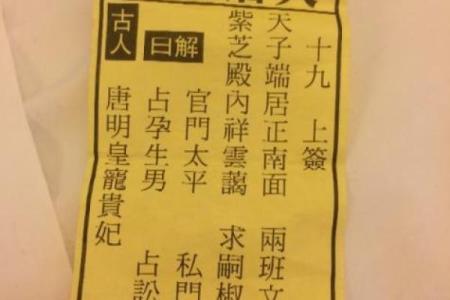 十九 上簽
天子端居正南面 兩班文
紫芝殿內祥雲藹 求嗣椒
解曰
官門太平 私門
占孕生男 占訟
古人
唐明皇寵貴妃